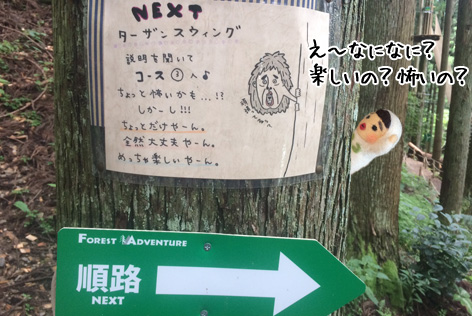 NEXT
ターザンスウィング
説明を聞いて
コース②へ♪
ちょっと怖いかも…!?
しかーし!!!
ちょっとだけやーん。
全然大丈夫やーん。
めっちゃ楽しいやーん。
え～なになに?
楽しいの?怖いの?
FOREST ADVENTURE
順路
NEXT